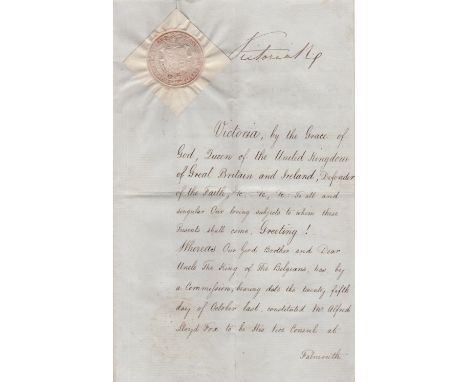 Victoria R
Victoria, by the Grace of
God, Queen of the United Kingdom
of Great Britain and Ireland, Defender
of the Faith, &c. &c. &c. To all and
singular Our loving subjects to whom these
Presents shall come, Greeting!
Whereas Our Good Brother and Dear
Uncle The King of The Belgians, has by
a Commission, bearing date the twenty fifth
day of October last, constituted Mr Alfred
Lloyd Fox to be His Vice Consul at
Falmouth